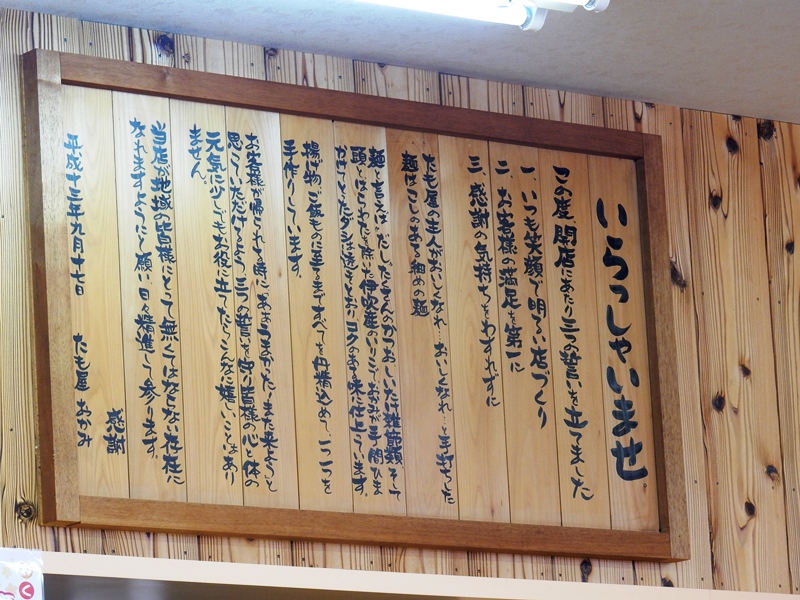 いらっしゃいませ
この度、開店にあたり三つの誓いを立てました
一、いつも笑顔で明るい店づくり
二、お客様の満足を第一に
三、感謝の気持ちをわすれずに
たも屋の主人がおいしくなれ おいしくなれ と手打った
麺はこしのある細めの麺
麺と言えばだし たくさんのかつおしいたけ 雑節類 そして
頭とはらわたを除いた伊吹産のいりこ おかみが手間ひま
かけてとったダシは透きとおりコクのある味に仕上っています。
揚げ物、ご飯ものに至るまですべてを丹精込めて、一つ一つを
手作りしています。
お客様が帰られる時に「ああうまかった!また来よう」と
思っていただけるよう、三つの誓いを守り皆様の心と体の
元気に少しでもお役に立てたら こんなに嬉しいことはあり
ません。
当店が地域の皆様にとって無くてはならない存在に
なれますようにと願い日々精進して参ります。
感謝
平成十三年九月十七日 たも屋 おかみ